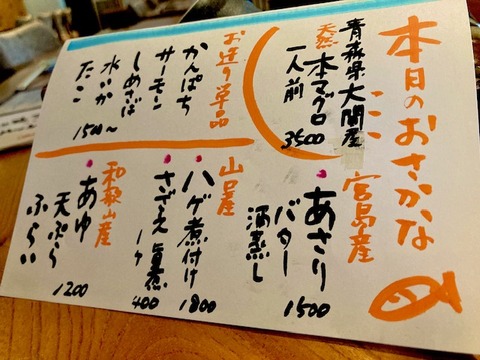 本日のおさかな
青森県大間産
天然本マグロ
一人前
3500
お造り単品
かんぱち
サーモン
しめさば
水いか
たこ
1500～
宮島産
・あさり
バター
酒蒸し
1500
山口産
・ハゲ煮付け
1800
・さざえ
1ケ
400
和歌山産
・あゆ
天ぷら
ふらい
1200